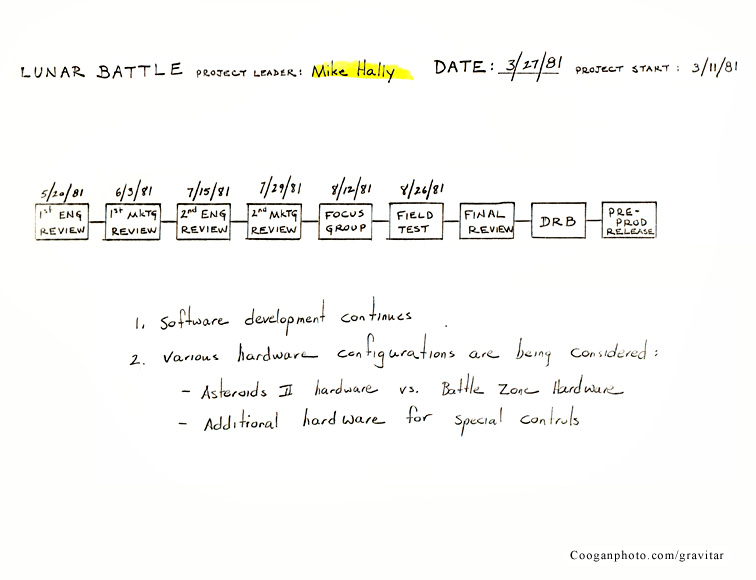 LUNAR BATTLE PROJECT LEADER: Mike Hally DATE: 3/27/81 PROJECT START: 3/11/81
5/20/81 6/3/81 7/15/81 7/29/81 8/12/81 8/26/81
1st ENG 1st MKTG 2nd ENG 2nd MKTG FOCUS FIELD FINAL DRB PRE-
REVIEW REVIEW REVIEW REVIEW GROUP TEST REVIEW PROD
RELEASE
1. Software development continues
2. Various hardware configurations are being considered:
- Asteroids II hardware vs. Battle Zone Hardware
- Additional hardware for special controls
Cooganphoto.com/gravitar